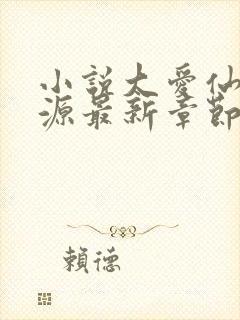 小說太愛仙
源最新章節
賴德